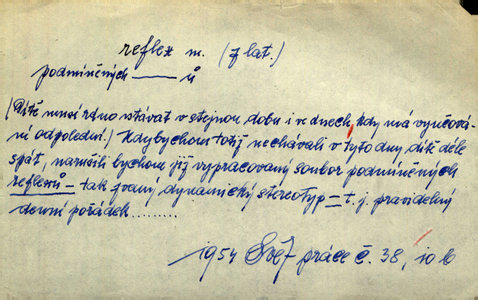 reflex m. (z lat.)
podmíněných —— ů
(Dítě musí ráno vstávat v stejnou dobu i ve dnech, kdy má vyučová-
ní odpolední.) Kdybychom totiž nechávali v tyto dny dítě déle
spát, narušili bychom jejich vypracovaný soubor podmíněných
reflexů – tak zvaný dynamický stereotyp – t. j. pravidelný
denní pořádek.........
1954 Svět práce č. 38, 10 b